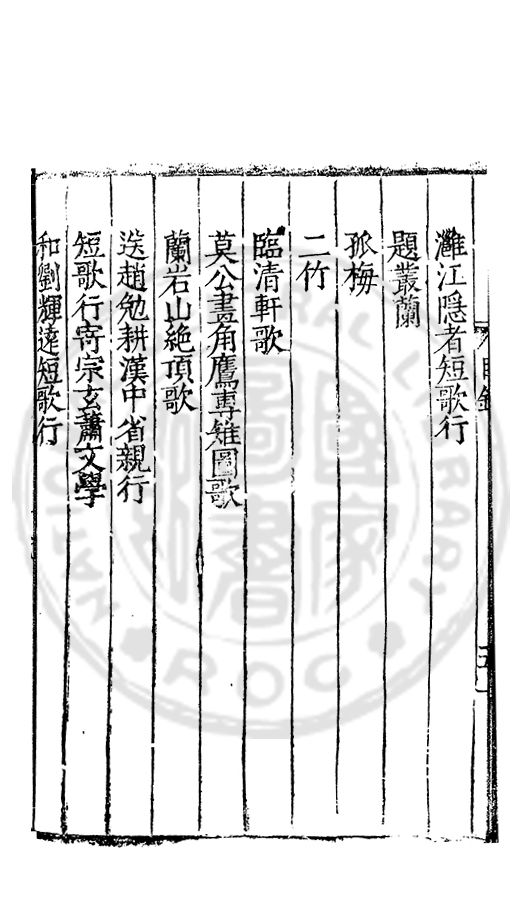 灘江隱者短歌行
題叢蘭
孤梅
二竹
臨清軒歌
莫公畫角鷹專雉圖歌
蘭岩山絶頂歌
送趙勉耕漢中省親行
短歌行寄宗玄蕭文學
和劉輝逵短歌行
目錄
國家圖書